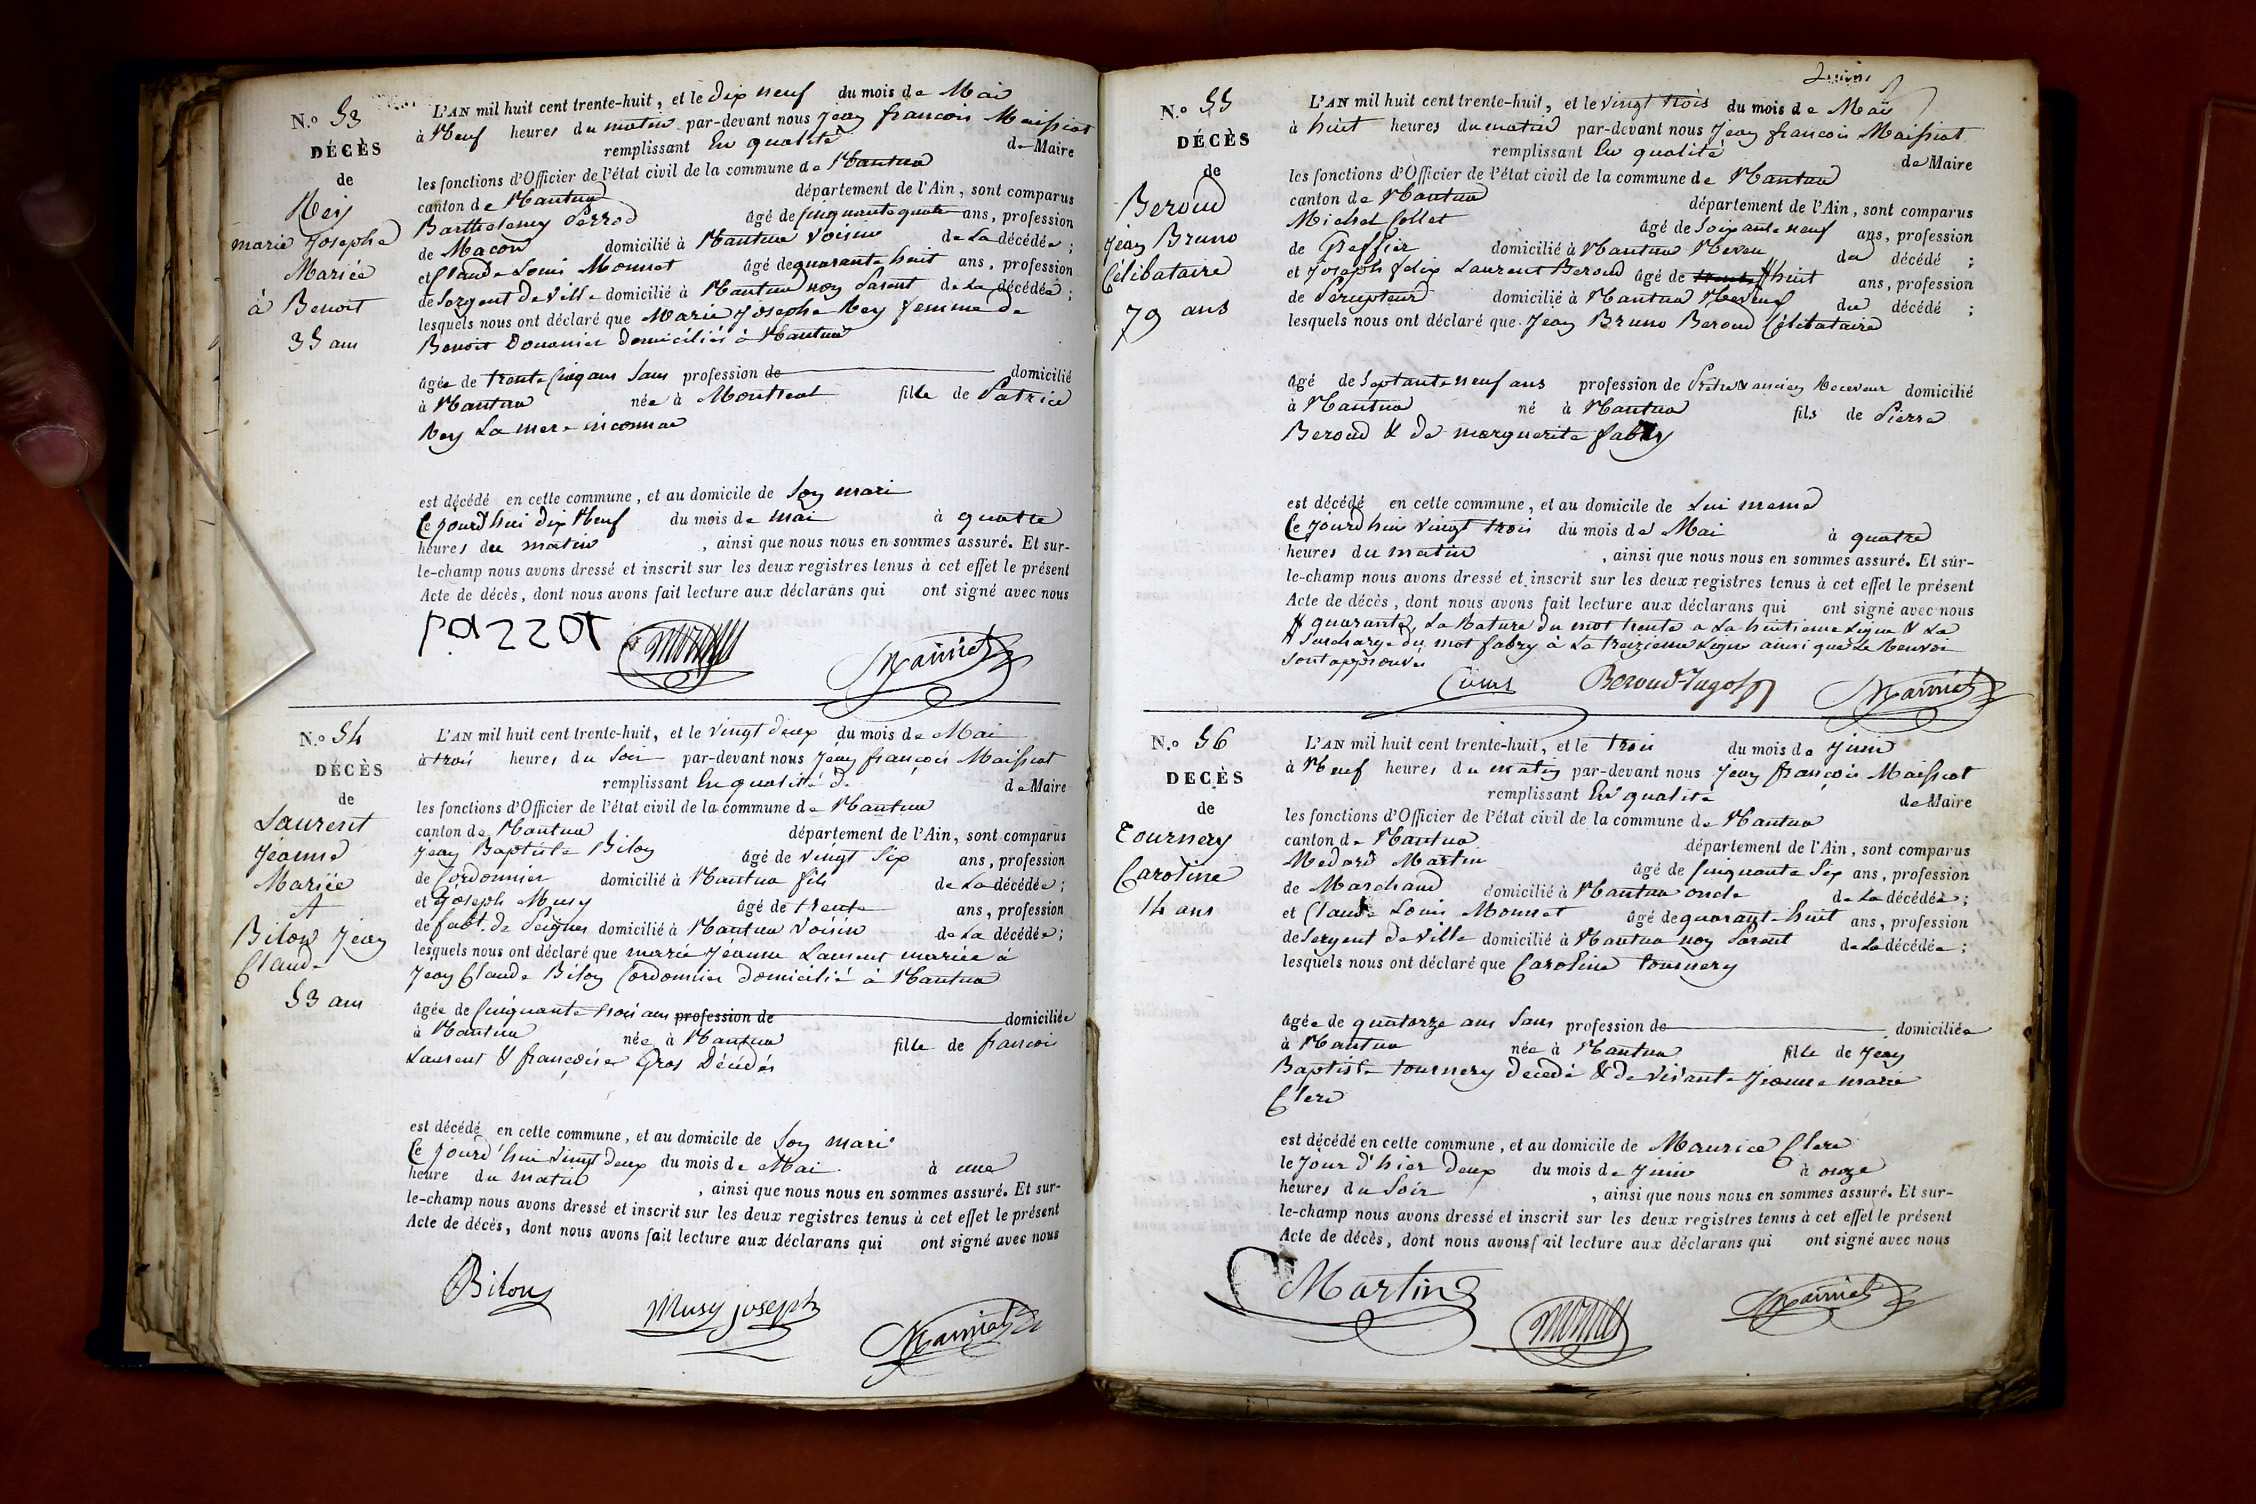 N.o 53
DÉCÈS
de
Rey
marie Josephe
Mariée
à Benoit
35 ans
L'AN mil huit cent trente-huit, et le dix neuf du mois de Mai
à Neuf heures du matin par-devant nous Jean francois Maissiat
remplissant En qualité de Maire
les fonctions d'Officier de l'état civil de la commune de Nantua
canton de Nantua département de l'Ain, sont comparus
Barthelemy Perrod âgé de cinquante quatre ans, profession
de Macon domicilié à Nantua Voisin de La décédée ;
et Claude Louis Monnet âgé de quarante huit ans, profession
de Sergent de Ville domicilié à Nantua non Parent de La décédée ;
lesquels nous ont déclaré que Marie Josephe Rey femme de
Benoit Douanier domiciliés à Nantua
âgée de trente cinq ans Sans profession de domicilié
à Nantua née à Montreal fille de Patrice
Rey La mere inconnue
est décédé en cette commune, et au domicile de Son mari
Ce jourd'hui dix Neuf du mois de mai à quatre
heures du matin , ainsi que nous nous en sommes assuré. Et sur-
le-champ nous avons dressé et inscrit sur les deux registres tenus à cet effet le présent
Acte de décès, dont nous avons fait lecture aux déclarans qui ont signé avec nous
monnet Maissiat
N.o 54
DÉCÈS
de
Laurent
Jeanne
Mariée
A
Bilon Jean
Claude
53 ans
L'AN mil huit cent trente-huit, et le vingt deux du mois de Mai
à trois heures du Soir par-devant nous Jean françois Maissiat
remplissant En qualité de de Maire
les fonctions d'Officier de l'état civil de la commune de Nantua
canton de Nantua département de l'Ain, sont comparus
Jean Baptiste Bilon âgé de vingt Six ans, profession
de Cordonnier domicilié à Nantua fils de La décédée ;
et Joseph Musy âgé de trente ans, profession
de fabt. de Peignes domicilié à Nantua Voisin de La décédée ;
lesquels nous ont déclaré que marie Jeanne Laurent mariée à
Jean Claude Bilon Cordonnier domicilié à Nantua
âgée de cinquante trois ans profession de domiciliée
à Nantua née à Nantua fille de francois
Laurent & françoise Gros Décédés
est décédé en cette commune, et au domicile de Son mari
Ce jourd'hui vingt deux du mois de Mai à une
heure du matin , ainsi que nous nous en sommes assuré. Et sur-
le-champ nous avons dressé et inscrit sur les deux registres tenus à cet effet le présent
Acte de décès, dont nous avons fait lecture aux déclarans qui ont signé avec nous
Bilon Musy joseph Maissiat
Juin
N.o 55
DÉCÈS
de
Beroud
Jean Bruno
Célibataire
79 ans
L'AN mil huit cent trente-huit, et le vingt trois du mois de Mai
à huit heures du matin par-devant nous Jean francois Maissiat
remplissant En qualité de Maire
les fonctions d'Officier de l'état civil de la commune de Nantua
canton de Nantua département de l'Ain, sont comparus
Michel Collet âgé de Soixante neuf ans, profession
de Greffier domicilié à Nantua Neveu du décédé ;
et Joseph felix Laurent Beroud âgé de trente huit ans, profession
de domicilié à Nantua Neveu du décédé ;
lesquels nous ont déclaré que Jean Bruno Beroud Célibataire
âgé de Septante neuf ans profession de Prêtre & ancien Receveur domicilié
à Nantua né à Nantua fils de Pierre
Beroud & de marguerite fabry
est décédé en cette commune, et au domicile de Lui meme
Ce jourd'hui vingt trois du mois de Mai à quatre
heures du matin , ainsi que nous nous en sommes assuré. Et sur-
le-champ nous avons dressé et inscrit sur les deux registres tenus à cet effet le présent
Acte de décès, dont nous avons fait lecture aux déclarans qui ont signé avec nous
# quarante, La Rature du mot trente a La huitieme Ligne & La
# Surcharge du mot fabry à La treizieme Ligne ainsi que Le Renvoi
Sont approuvés
Beroud Maissiat
N.o 56
DECÈS
de
Tournery
Caroline
14 ans
L'AN mil huit cent trente-huit, et le trois du mois de Juin
à Neuf heures du matin par-devant nous Jean françois Maissiat
remplissant En qualité de Maire
les fonctions d'Officier de l'état civil de la commune de Nantua
canton de Nantua département de l'Ain, sont comparus
Medard Martin âgé de cinquante Six ans, profession
de Marchand domicilié à Nantua oncle de La décédée ;
et Claude Louis Monnet âgé de quarante huit ans, profession
de Sergent de Ville domicilié à Nantua non Parent de La décédée ;
lesquels nous ont déclaré que Caroline tournery
âgée de quatorze ans Sans profession de domiciliée
à Nantua née à Nantua fille de Jean
Baptiste tournery decedé & de vivante Jeanne marie
Clerc
est décédé en cette commune, et au domicile de Maurice Clerc
le Jour d'hier deux du mois de Juin à onze
heures du Soir , ainsi que nous nous en sommes assuré. Et sur-
le-champ nous avons dressé et inscrit sur les deux registres tenus à cet effet le présent
Acte de décès, dont nous avons fait lecture aux déclarans qui ont signé avec nous
Martin monnet Maissiat